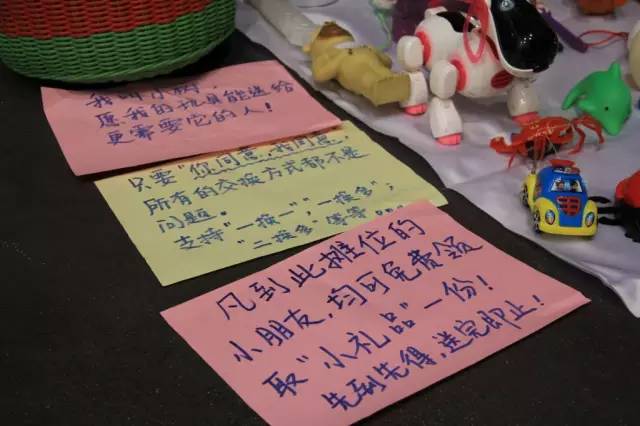 我叫小
愿我的玩具能送给
更需要它的人！
只要"你同意，我同意，
所有的交换方式都不是
问题。
支持"一换一"，"一换多"，
"二换多"等等。。。
凡到此摊位的
小朋友，均可免费领
取"小礼品"一份！
先到先得，送完即止！